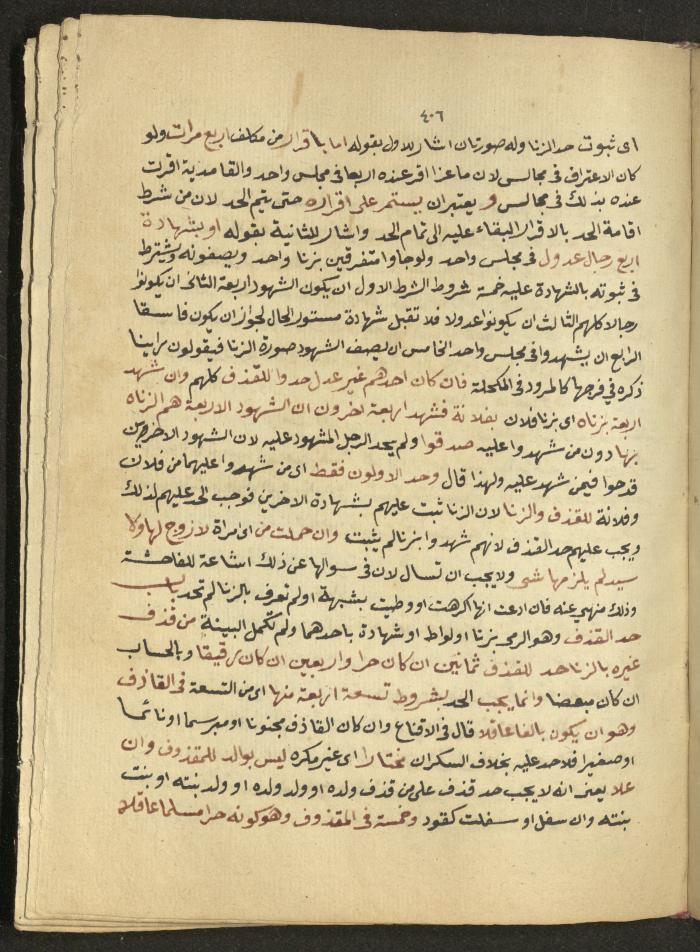 ٤٠٦
اى ثبوت حد الزنا وله صورتان اشار للاول بقوله اما باقرار من مكلف اربع مرات ولو
كان الاعتراف فى مجالس لان ماعزا اقر عنده اربعا فى مجلس واحد والغامدية اقرت
عنده بذلك فى مجالس و يعتبر ان يستمر على اقراره حتى يتم الحد لان من شرط
اقامة الحد بالاقرار البقاء عليه الى تمام الحد واشار للثانية بقوله او بشهادة
اربع رجال عدول فى مجلس واحد ولو جاوا متفرقين بزنا واحد ويصفونه ويشترط
فى ثبوته بالشهادة عليه خمسة شروط الشرط الاول ان يكون الشهود اربعة الثانى ان يكونوا
رجالا كلهم الثالث ان يكونوا عدولا فلا تقبل شهادة مستور الحال لجواز ان يكون فاسقا
الرابع ان يشهدوا فى مجلس واحد الخامس ان يصف الشهود صورة الزنا فيقولون راينا
ذكره فى فرجها كالمرود فى المكحلة فان كان احدهم غير عدل حدوا للقذف كلهم وان شهد
اربعة بزناه اى بزنا فلان بفلانة فشهد اربعة اخرون ان الشهود الاربعة هم الزناه
بها دون من شهدوا عليه صدقوا ولم يحد الرجل المشهود عليه لان الشهود الاخرين
قدحوا فيمن شهد عليه ولهذا قال وحد الاولون فقط اى من شهدوا عليهما من فلان
وفلانة للقذف والزنا لان الزنا ثبت عليهم بشهادة الاخرين فوجب الحد عليهم لذلك
ويجب عليهم حد القذف لانهم شهدوا بزنا لم يثبت وان حملت من اى امراة لا زوج لها ولا
سيد لم يلزمها شى ولا يجب ان تسال لان فى سوالها عن ذلك اشاعة للفاحشة
وذلك منهي عنه فان ادعت انها اكرهت او وطيت بشبهة او لم تعرف بالزنا لم تحد باب
حد القذف وهو الرمى بزنا او لواط او شهادة باحدهما ولم تكمل البينة من قذف
غيره بالزنا حد للقذف ثمانين ان كان حرا واربعين ان كان رقيقا وبالحساب
ان كان مبعضا وانما يجب الحد بشروط تسعة اربعة منها اى من التسعة فى القاذف
وهو ان يكون بالغا عاقلا قال فى الاقناع وان كان القاذف مجنونا او مبرسما او نائما
او صغيرا فلا حد عليه بخلاف السكران مختارا اى غير مكره ليس بوالد للمقذوف وان
علا يعنى انه لا يجب حد قذف على من قذف ولده او ولد ولده او ولد بنته او بنت
بنته وان سفل او سفلت كقود وخمسة فى المقذوف وهو كونه حرا مسلما عاقلا